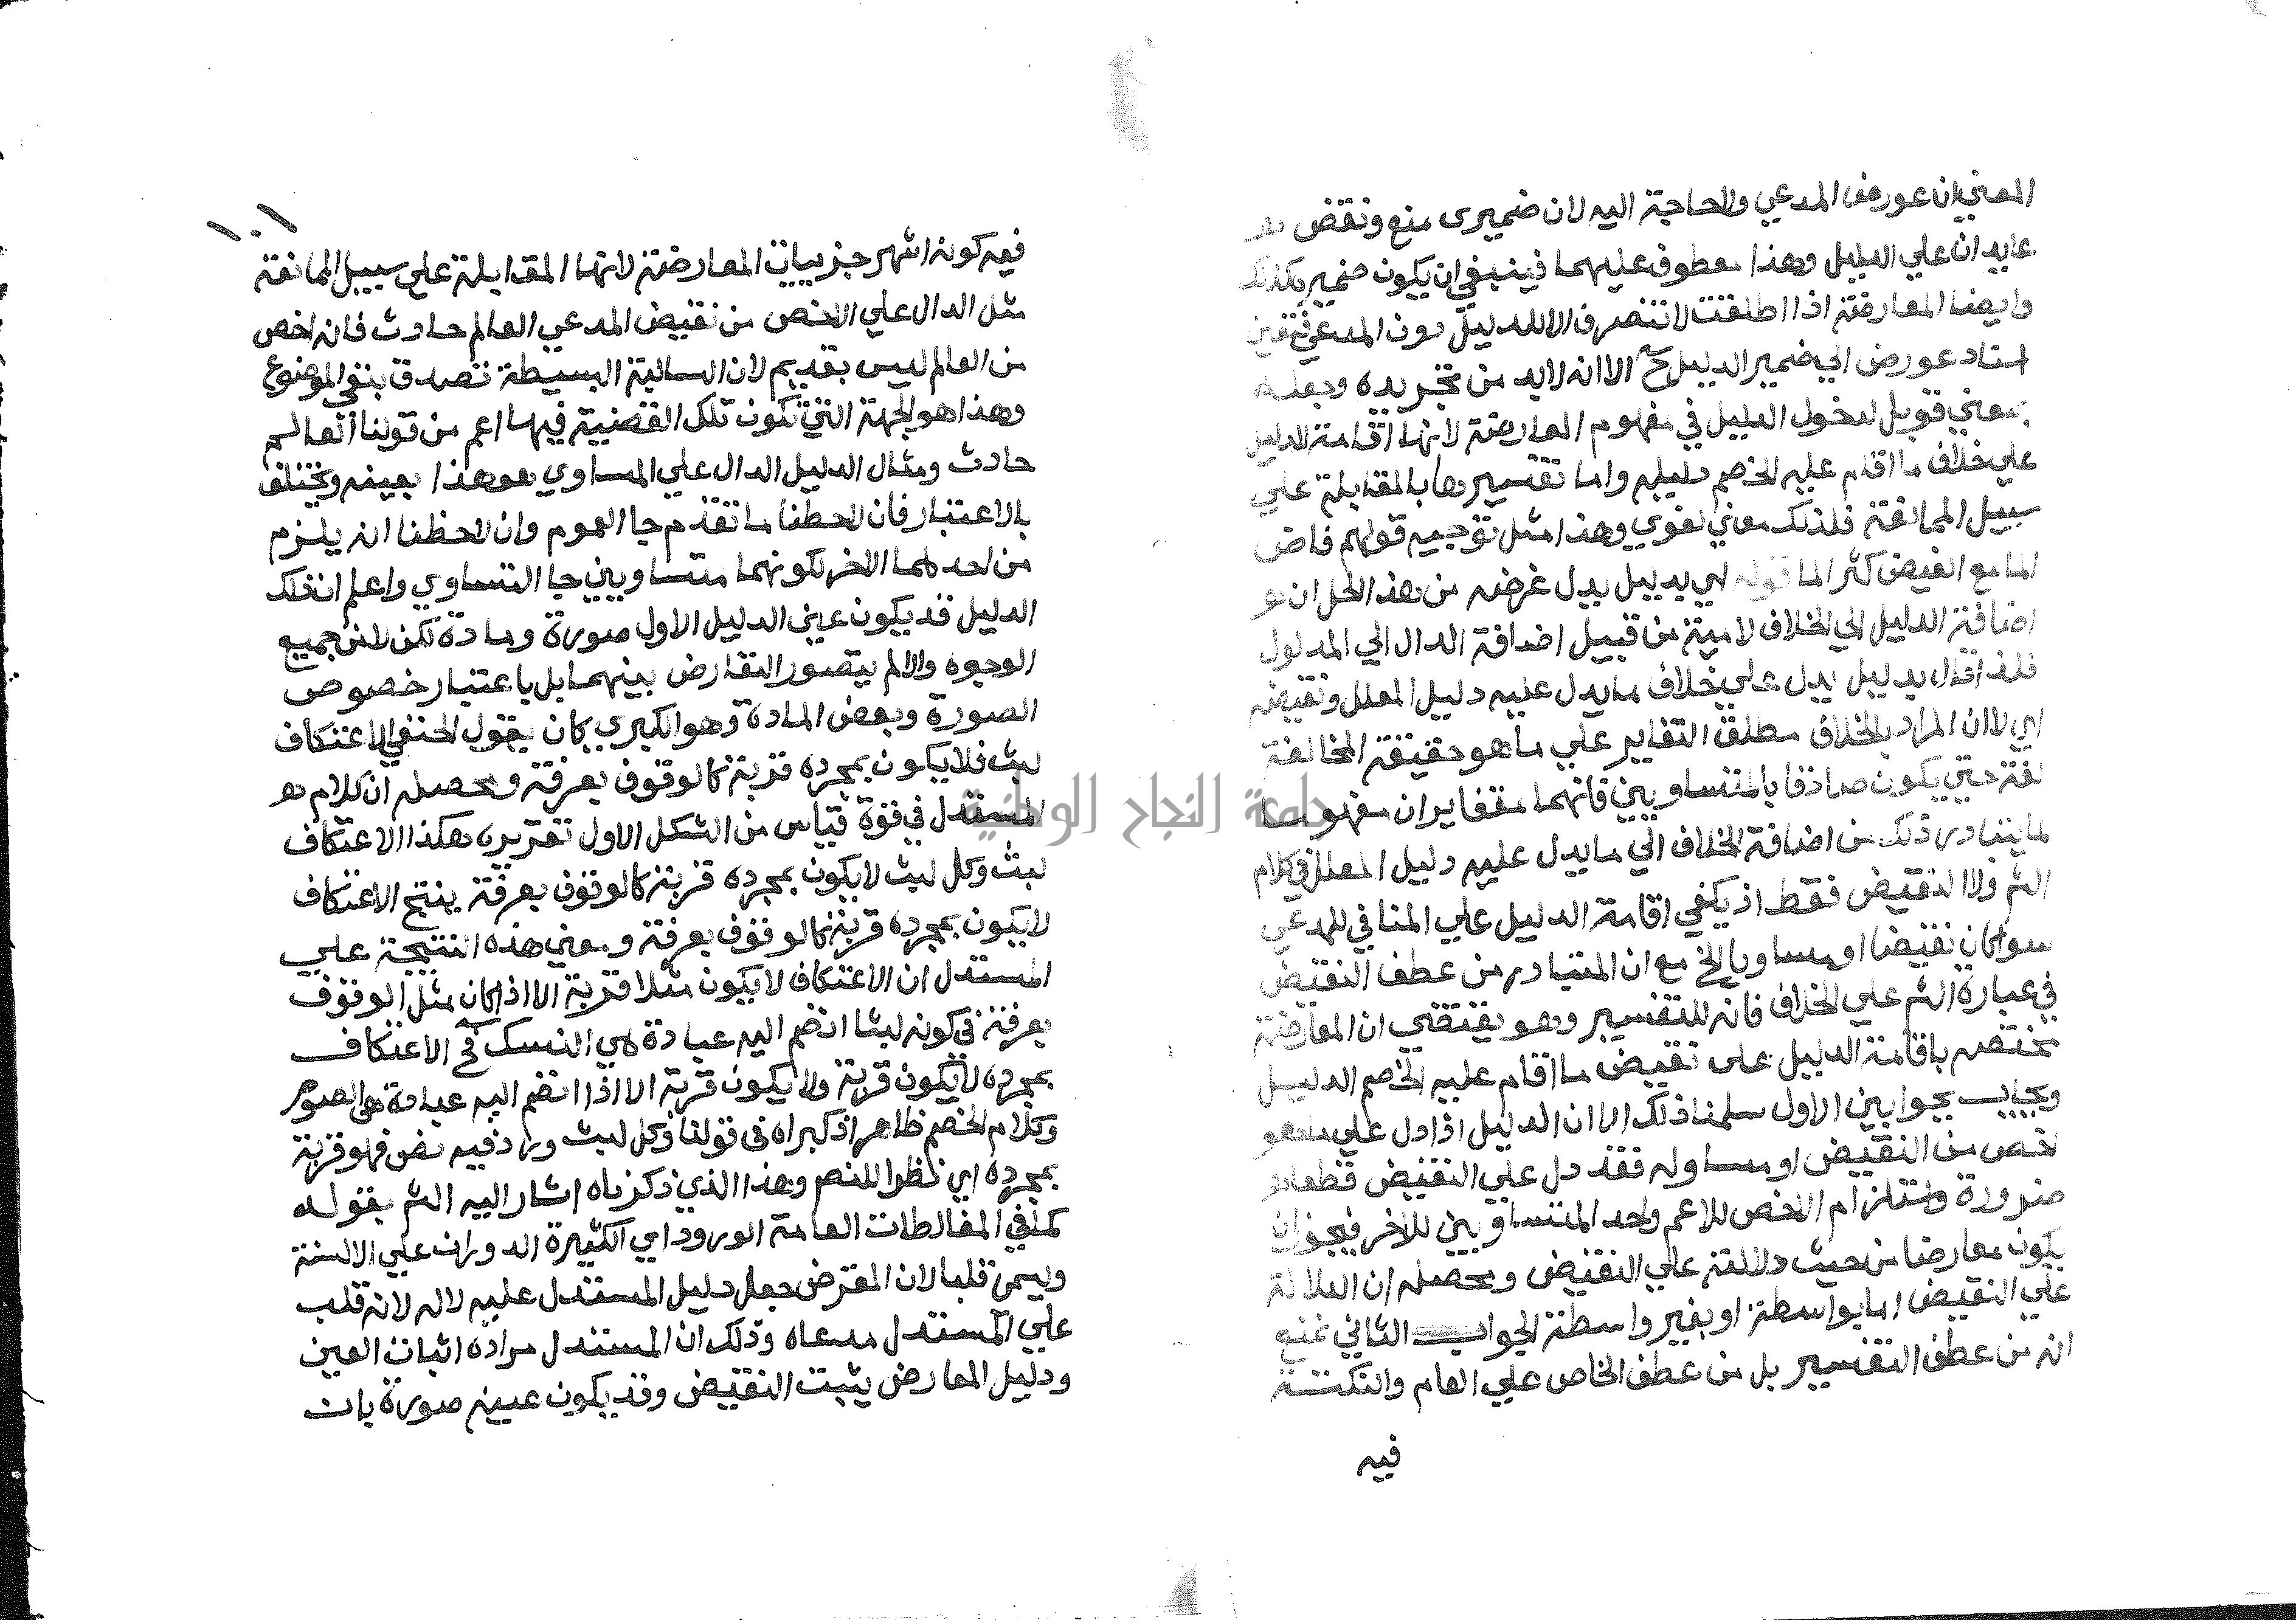 المعني ان عورض المدعي ولا حاجة اليه لان ضميري منع ونقض
عايدان علي الدليل وهذا معطوف عليهما فينبغي ان يكون ضميره كذلك
وايضا المعارضة اذا اطلقت لا تنصرف الا للدليل دون المدعي فتعين
اسناد عورض الي ضمير الدليل ح الا انه لابد من تجريده وجعله
بمعني قوبل لدخول الدليل في مفهوم المعارضة لانها اقامة الدليل
علي خلاف ما اقام عليه الخصم دليله واما تفسيرها بالمقابلة علي
سبيل الممانعة فلذلك معني لغوي وهذا مثل توجيه قولهم فاض
الما مع الفيض كثر الما قوله اي بدليل يدل غرضه من هذا الحل ان
اضافة الدليل الي الخلاف لامية من قبيل اضافة الدال الي المدلول
فلذا قال بدليل يدل علي خلاف ما يدل عليه دليل المعلل ونقيضه
اي لا ان المراد بالخلاف مطلق التغاير علي ما هو حقيقة المخالفة
لغة حتي يكون صادقا بالمتساويين فانهما متغايران مفهوما
لما يتبادر ذلك من اضافة الخلاف الي ما يدل عليه دليل المعلل في كلام
الش ولا النقيض فقط اذ يكفي اقامة الدليل علي المنافي للمدعي
سوا كان نقيضا او مساويا الخ مع ان المتبادر من عطف النقيض
في عبارة الش علي الخلاف فانه للتفسير وهو يقتضي ان المعارضة
تختص باقامة الدليل علي نقيض ما اقام عليه الخصم الدليل
ويجاب بجوابين الاول سلمنا ذلك الا ان الدليل اذا دل علي ما هو
اخص من النقيض او مساو له فقد دل علي النقيض قطعا
ضرورة استلزام الاخص للاعم واحد المتساويين للاخر فيجوز ان
يكون معارضا من حيث دلالته علي النقيض ومحصله ان الدلالة
علي النقيض اما بواسطة او بغير واسطة الجواب الثاني نمنع
انه من عطف التفسير بل من عطف الخاص علي العام والنكتة
فيه
١٠١
فيه كونه اشهر جزييات المعارضة لانها المقابلة علي سبيل الممانعة
مثل الدال علي الاخص من نقيض المدعي العالم حادث فانه اخص
من العالم ليس بقديم لان السالبة البسيطة تصدق بنفي الموضوع
وهذا هو الجهة التي تكون تلك القضية فيها اعم من قولنا العالم
حادث ومثال الدليل الدال علي المساوي هو هذا بعينه ويختلف
بالاعتبار فان لاحظنا ما تقدم جا العموم وان لاحظنا انه يلزم
من احدهما الاخر لكونهما متساويين جا التساوي واعلم ان ذلك
الدليل قد يكون عين الدليل الاول صورة ومادة لكن لا من جميع
الوجوه والا لم يتصور التعارض بينهما بل باعتبار خصوص
الصورة وبعض المادة وهو الكبري كان يقول الحنفي الاعتكاف
لبث فلا يكون بمجرده قربة كالوقوف بعرفة ومحصله ان كلام
المستدل في قوة قياس من الشكل الاول تقريره هكذا الاعتكاف
لبث وكل لبث لا يكون بمجرده قربة كالوقوف بعرفة ينتج الاعتكاف
لا يكون بمجرده قربة كالوقوف بعرفة ومعني هذه النتيجة علي
المستدل ان الاعتكاف لا يكون مثلا قربة الا اذا كان مثل الوقوف
بعرفة في كونه لبثا انضم اليه عبادة هي النسك في الاعتكاف
بمجرده لا يكون قربة ولا يكون قربة الا اذا انضم اليه عبادة هي الصوم
وكلام الخصم ظاهر اذ كبراه في قولنا وكل لبث ورد فيه نص فهو قربة
بمجرده اي نظرا للنص وهذا الذي ذكرناه اشار اليه الش بقوله
كما في المغالطات العامة الورود اي الكثيرة الدوران علي الالسنة
ويسمي قلبا لان المعترض جعل دليل المستدل عليه لا له لانه قلب
علي المستدل مدعاه وذلك ان المستدل مراده اثبات العين
ودليل المعارض يثبت النقيض وقد يكون عينه صورة بان
جامعة النجاح الوطنية